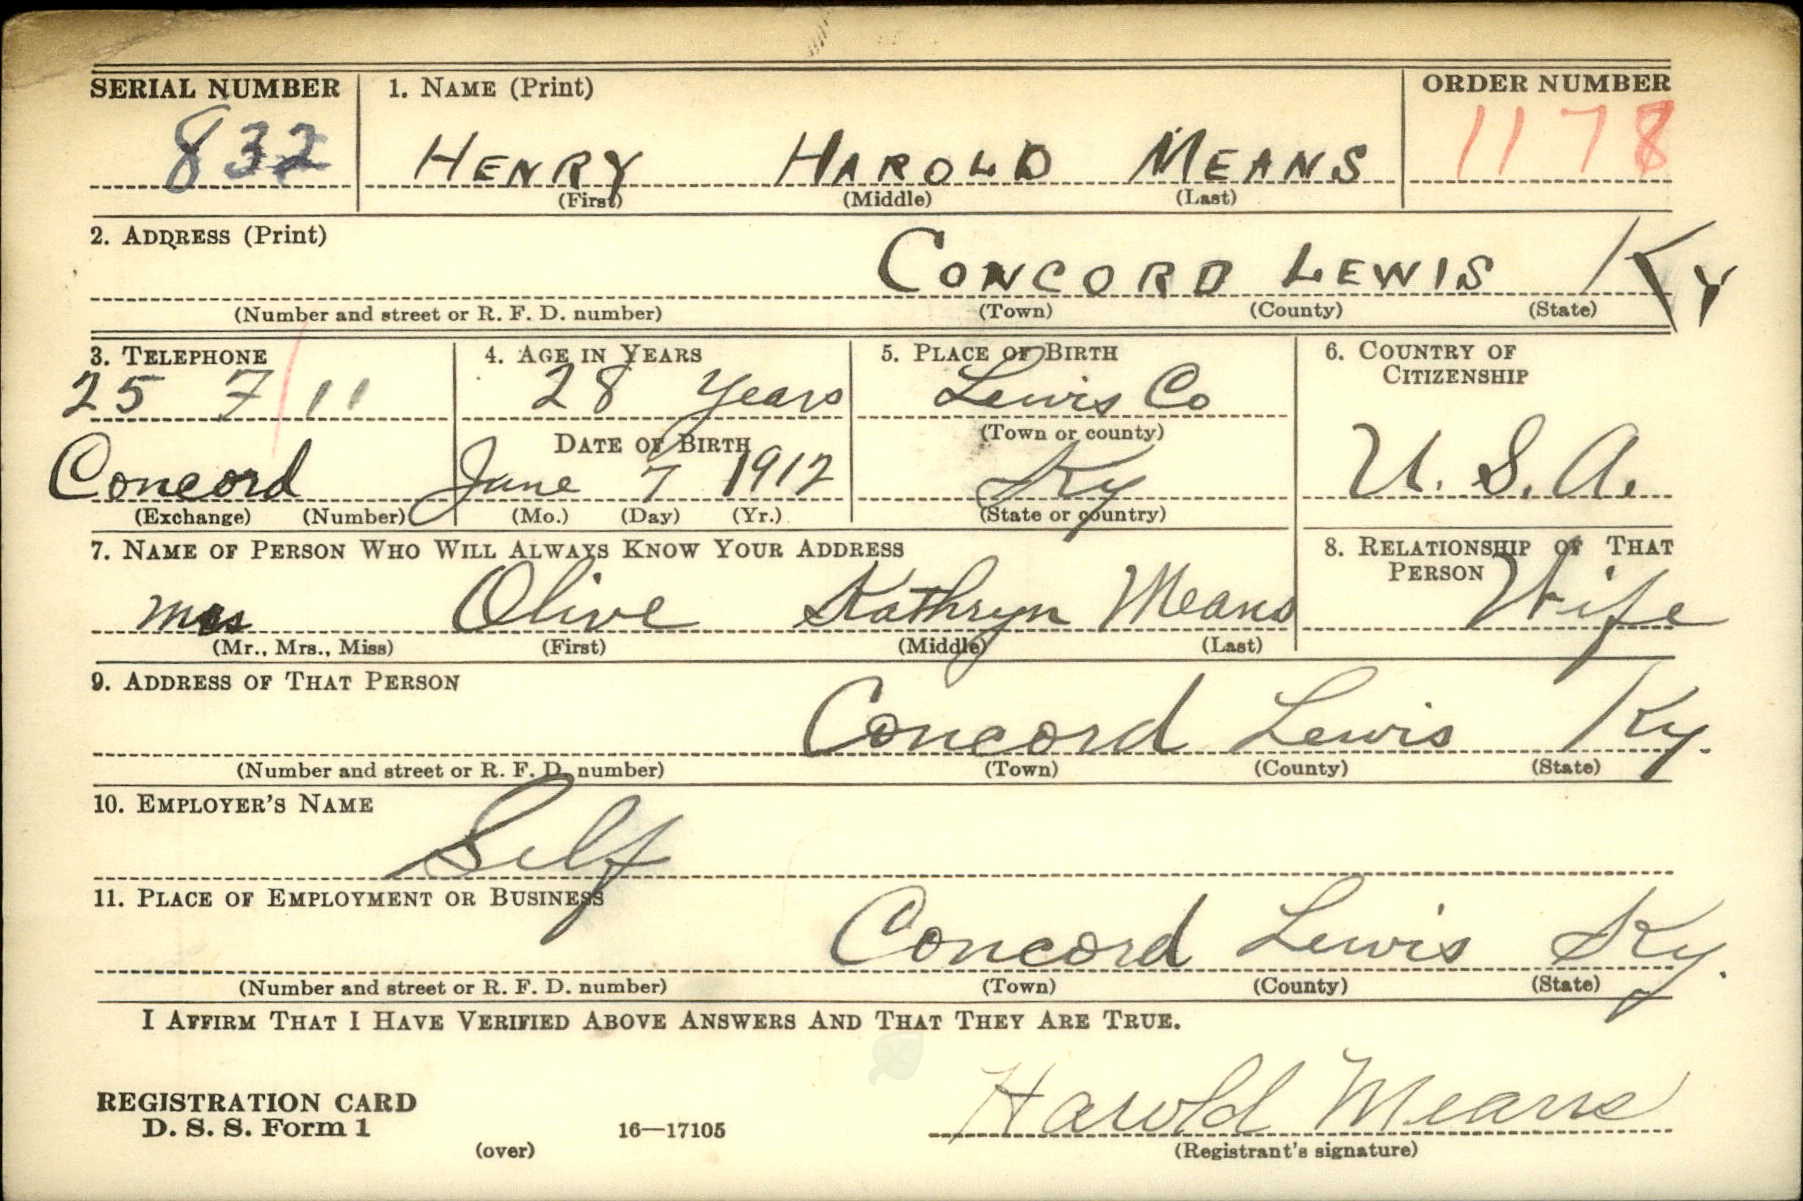 SERIAL NUMBER 1. NAME (Print) ORDER NUMBER
832 HENRY HAROLD MEANS 1178
(First) (Middle) (Last)
2. ADDRESS (Print)
CONCORD LEWIS KY
(Number and street or R. F. D. number) (Town) (County) (State)
3. TELEPHONE 4. AGE IN YEARS 5. PLACE OF BIRTH 6. COUNTRY OF
CITIZENSHIP
25 F 11 28 years Lewis Co
DATE OF BIRTH (Town or county)
Concord June 7 1912 Ky U. S. A.
(Exchange) (Number) (Mo.) (Day) (Yr.) (State or country)
7. NAME OF PERSON WHO WILL ALWAYS KNOW YOUR ADDRESS 8. RELATIONSHIP OF THAT
PERSON
Mrs Olive Kathryn Means Wife
(Mr., Mrs., Miss) (First) (Middle) (Last)
9. ADDRESS OF THAT PERSON
Concord Lewis Ky.
(Number and street or R. F. D. number) (Town) (County) (State)
10. EMPLOYER'S NAME
Self
11. PLACE OF EMPLOYMENT OR BUSINESS
Concord Lewis Ky.
(Number and street or R. F. D. number) (Town) (County) (State)
I AFFIRM THAT I HAVE VERIFIED ABOVE ANSWERS AND THAT THEY ARE TRUE.
REGISTRATION CARD
D. S. S. Form 1 16—17105 Harold Means
(over) (Registrant's signature)